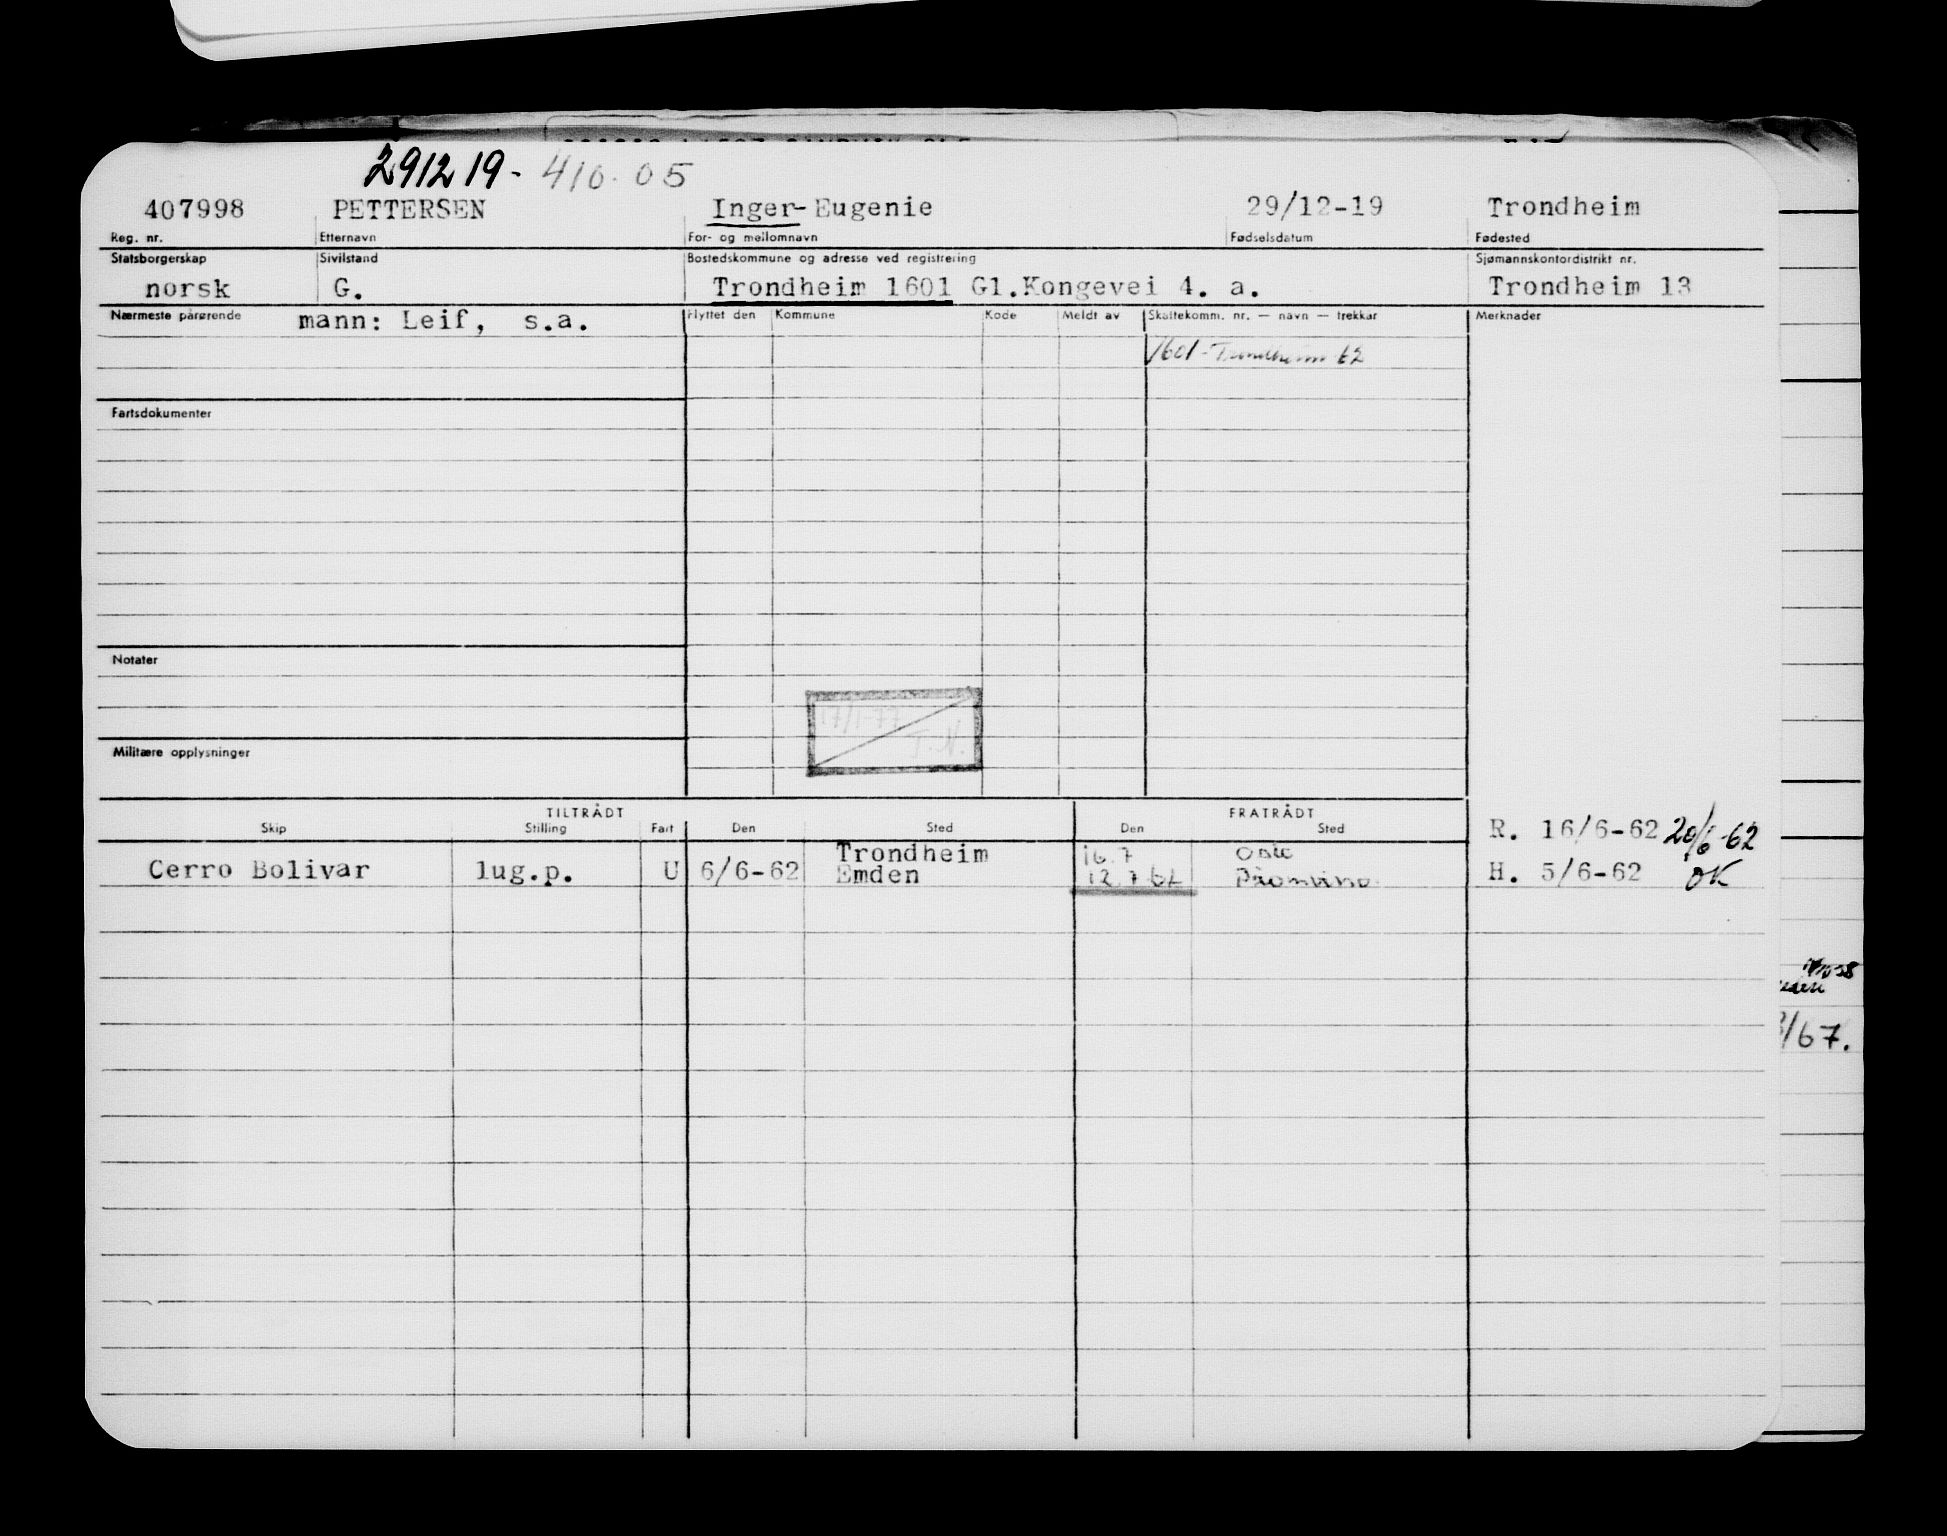 291219- 410.05
407998 PETTERSEN Inger-Eugenie 29/12-19 Trondheim
Reg. nr. Etternavn For- og mellomnavn Fødselsdatum Fødested
Statsborgerskap Sivilstand Bostedskommune og adresse ved registrering Sjømannskontordistrikt nr.
norsk G. Trondheim 1601 Gl.Kongevei 4. a. Trondheim 13
Nærmeste pårørende mann: Leif, s.a. Flyttet den Kommune Kode Meldt av Skattekomm. nr. — navn — trekkår Merknader
1601-Trondheim 62
Fartsdokumenter
Notater
17/1-77
T.N.
Militære opplysninger
TILTRÅDT FRATRÅDT
Skip Stilling Fart Den Sted Den Sted
R. 16/6-62 20/6-62
Trondheim 16.7 Oslo
Cerro Bolivar lug.p. U 6/6-62 Emden 12.7 62 H. 5/6-62 OK
/67.